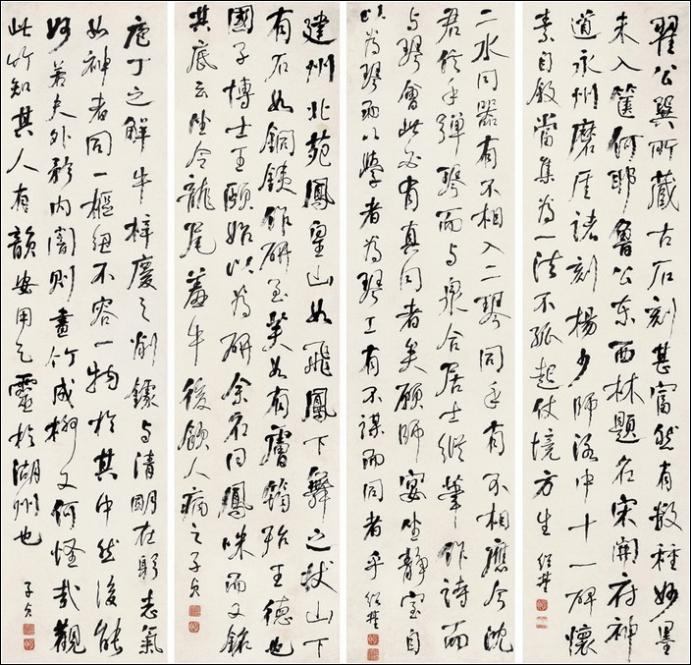 翟公巽所藏古石刻甚富然有数種妙墨
未入箧何耶魯公东西林题名宋開府神
道永州磨厓諸刻楊少师洛中十一碑懷
素自叙當集為一法不孤起仗境方生 绍基
二水同器有不相入二琴同手有不相應今沈
君信手弹琴而与泉合居士縱筆作詩而
与琴會此必有真同者矣願師宴坐静室自
為琴而以學者為琴工有不謀而同者乎 绍基
建州北苑鳳皇山如飛鳳下舞之状山下
有石如銅鐵作研至美如有膚筠殆玉德也
國子博士王頤始以為研余名曰鳳咮而又銘
其底云坐令龍尾羞牛後人病之 子貞
庖丁之解牛梓慶之削鐻与清明在躬志氣
如神者同一樞纽不容一物於其中然後能
妙若夫外矜内闇則畫竹成柳又何怪哉觀
此竹知其人有韻安用乞靈於湖州也 子貞